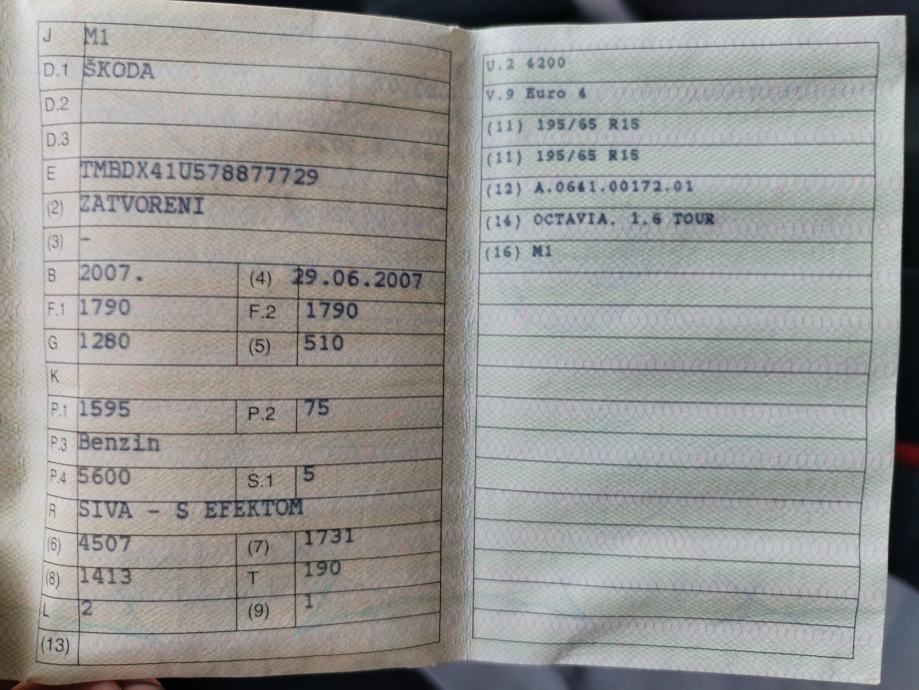 J M1
D.1 ŠKODA
D.2
D.3
E TMBDX41U578877729
(2) ZATVORENI
(3) -
B 2007. (4) 29.06.2007
F.1 1790 F.2 1790
G 1280 (5) 510
K
P.1 1595 P.2 75
P.3 Benzin
P.4 5600 S.1 5
R SIVA - S EFEKTOM
(6) 4507 (7) 1731
(8) 1413 T 190
L 2 (9) 1
(13)
U.2 4200
V.9 Euro 4
(11) 195/65 R15
(11) 195/65 R15
(12) A.0641.00172.01
(14) OCTAVIA. 1.6 TOUR
(16) M1